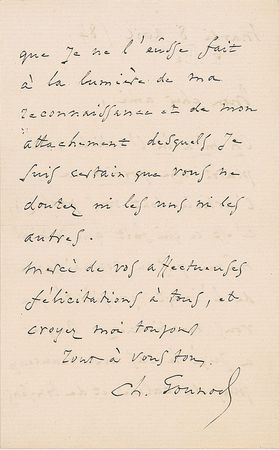 que je ne l'eûsse fait
à la lumière de ma
reconnaissance et de mon
attachement desquels je
suis certain que vous ne
doutez ni les uns ni les
autres.
merci de vos affectueuses
félicitations à tous, et
croyez moi toujours
Tout à vous tous.
Ch. Gounod